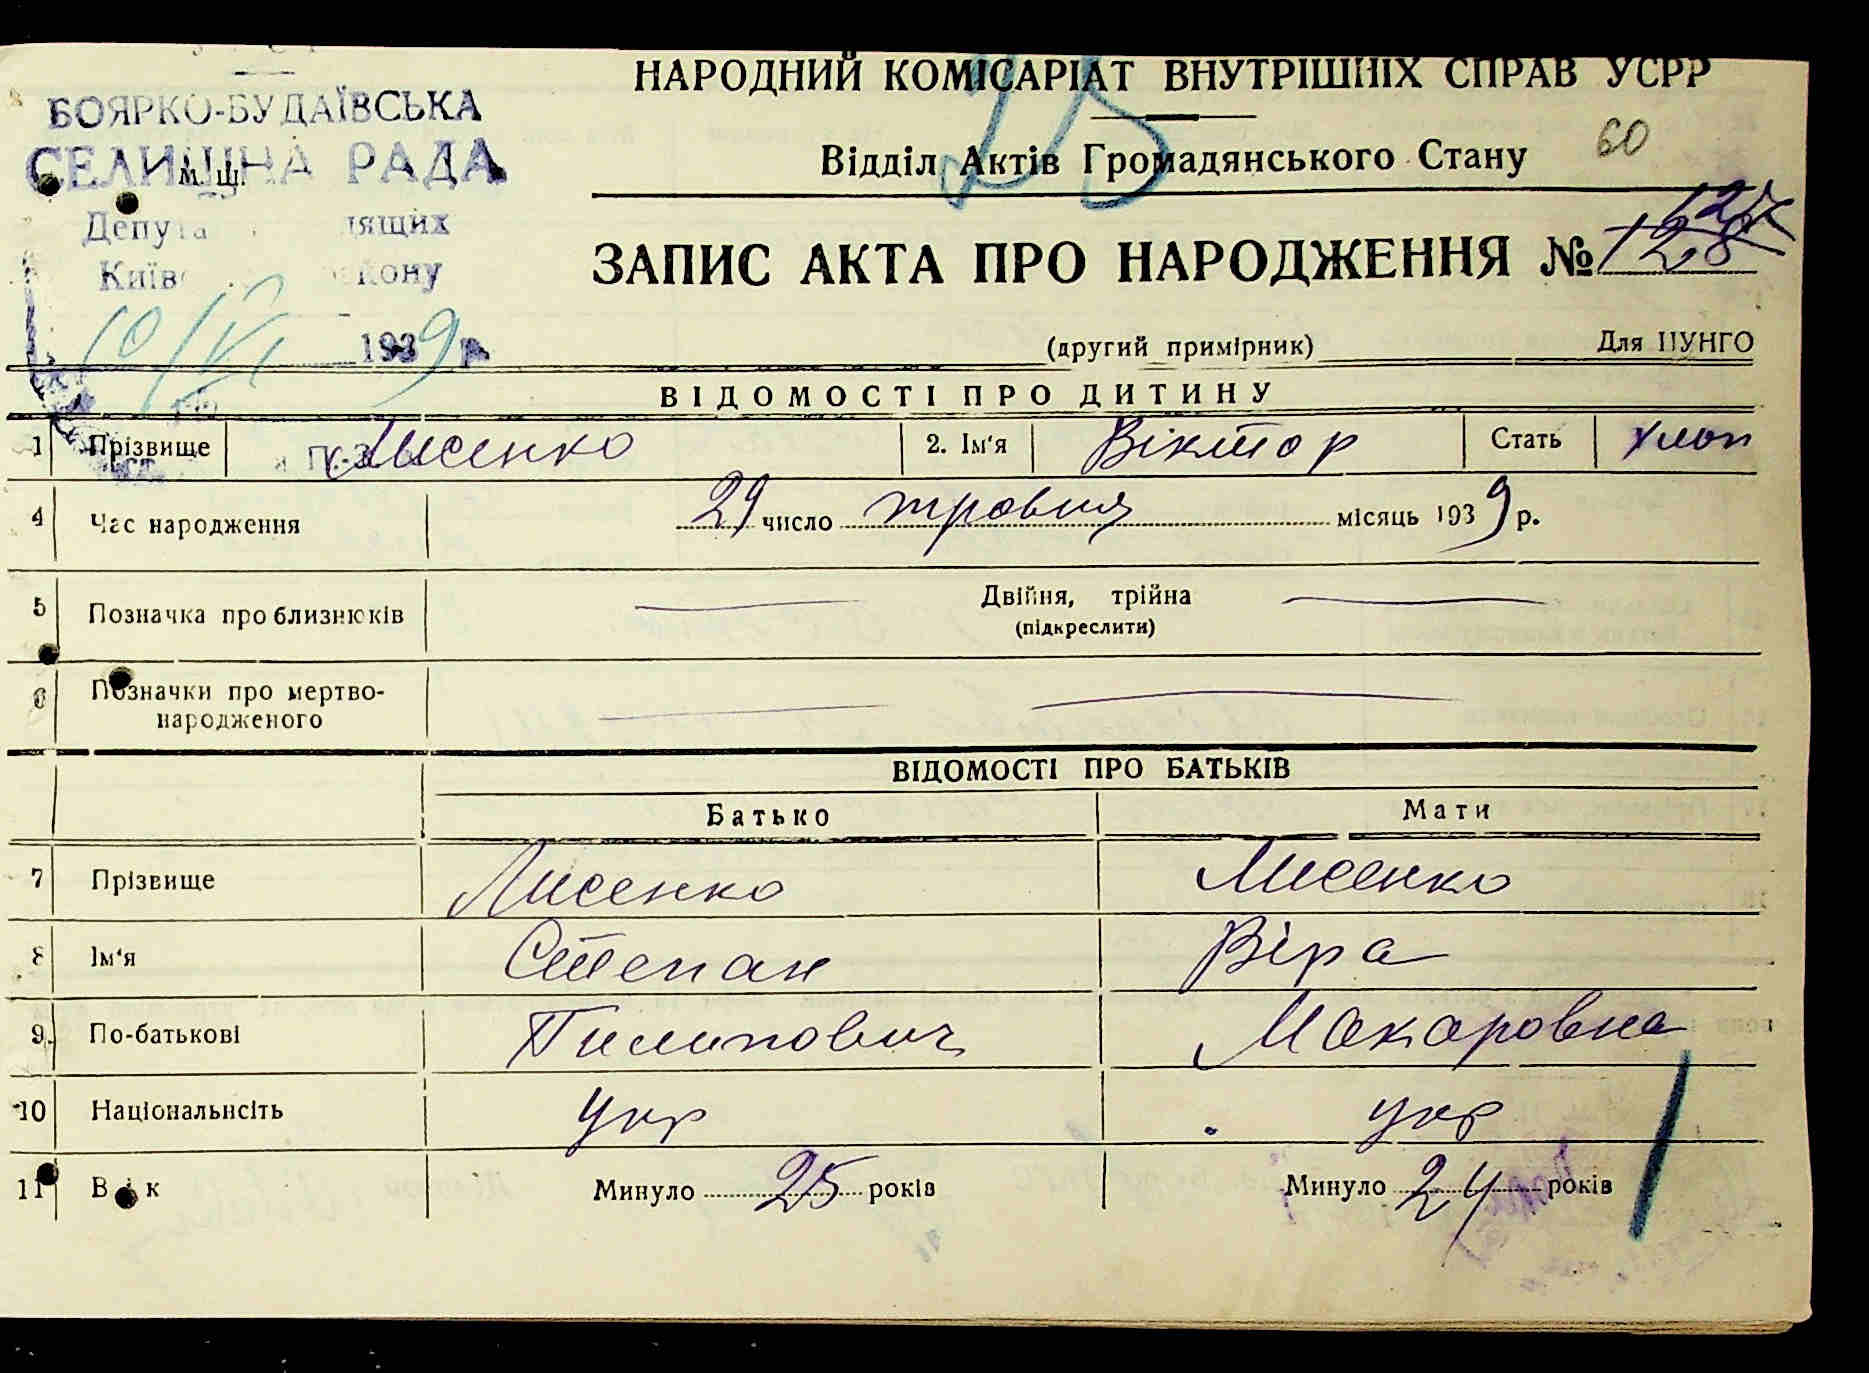 НАРОДНИЙ КОМІСАРІАТ ВНУТРІШНІХ СПРАВ УСРР
25
60
Відділ Актів Громадянського Стану
БОЯРКО-БУДАЇВСЬКА
СЕЛИЩНА РАДА
М. Ш.
Депута дящих
Київ кону
10/VI 1939 р.
ЗАПИС АКТА ПРО НАРОДЖЕННЯ № 128
(другий примірник) Для ЦУНГО
ВІДОМОСТІ ПРО ДИТИНУ
1 Прізвище Лисенко 2. Ім'я Віктор Стать хлоп
4 Час народження 29 число травня місяць 1939 р.
5 Позначка про близнюків Двійня, трійна
(підкреслити)
6 Позначки про мертво-
народженого
ВІДОМОСТІ ПРО БАТЬКІВ
Батько Мати
7 Прізвище Лисенко Лисенко
8 Ім'я Степан Віра
9. По-батькові Пилипович Макаровна
10 Національнсіть укр укр
11 Вік Минуло 25 років Минуло 24 років